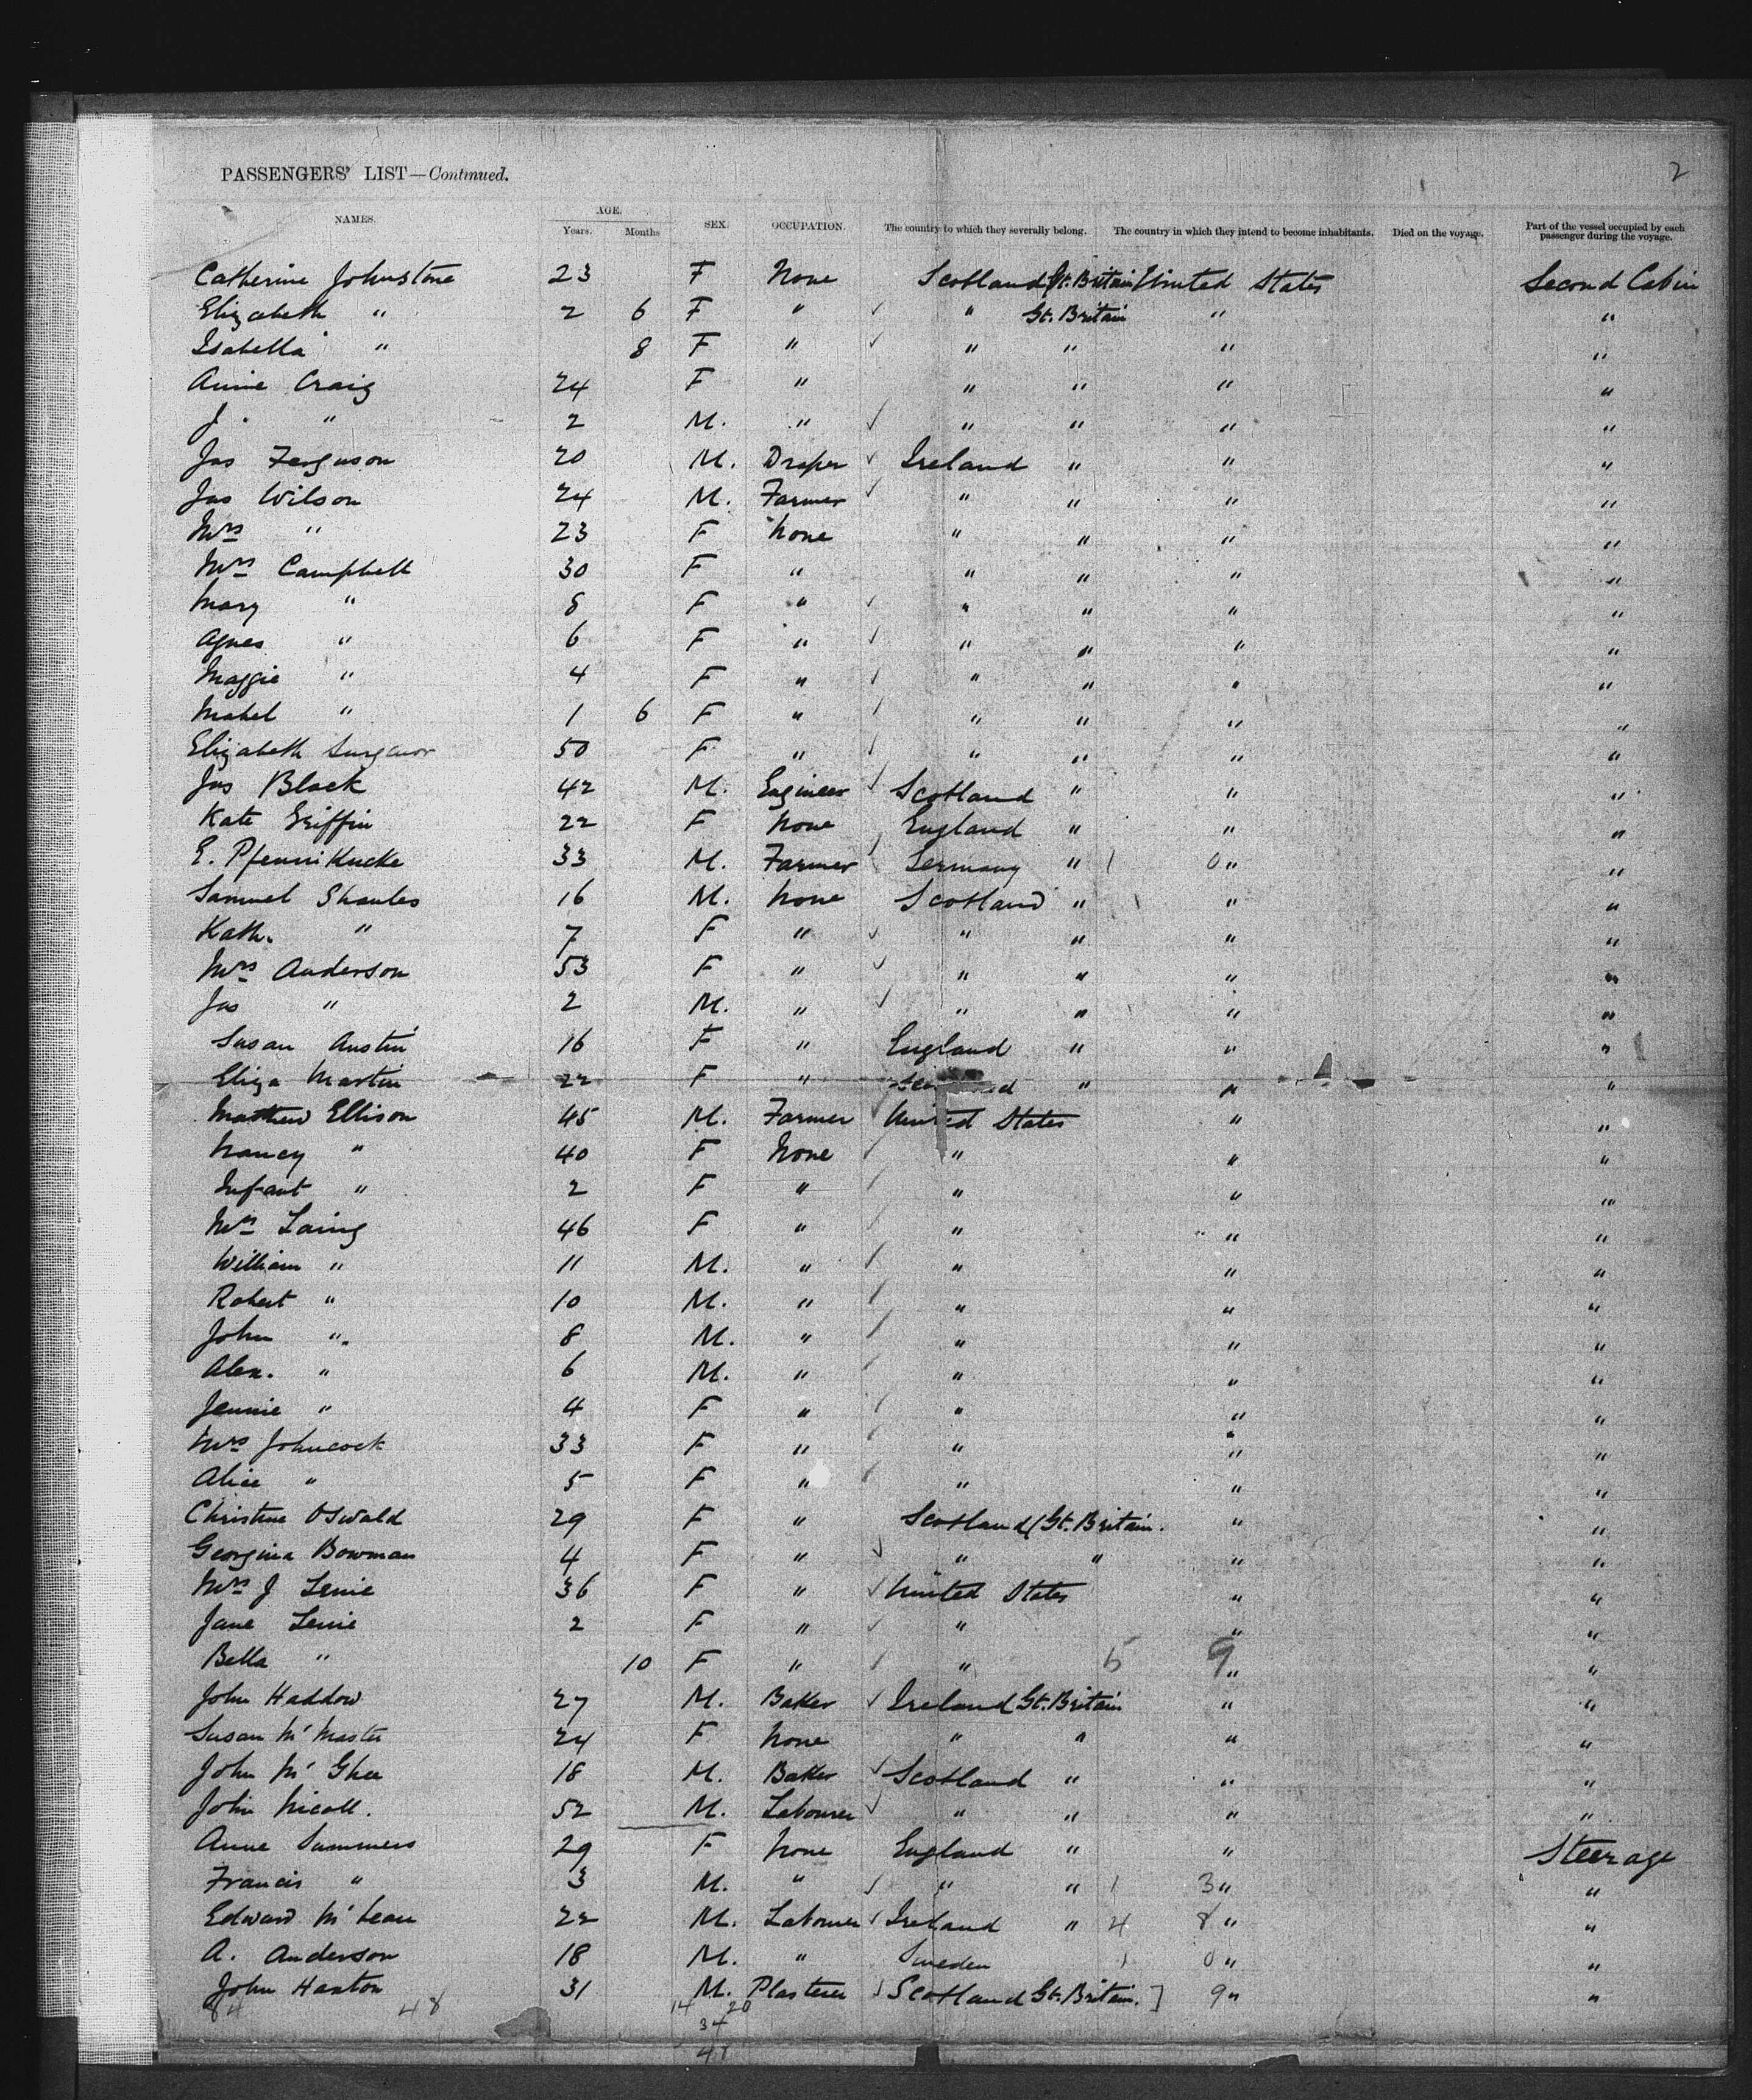 2
PASSENGERS' LIST—Continued.
NAMES. AGE. Years. Months SEX. OCCUPATION. The country to which they severally belong. The country in which they intend to become inhabitants. Died on the voyage. Part of the vessel occupied by each passenger during the voyage.
Catherine Johnstone 23 F None Scotland Gt. Britain United States Second Cabin
Elizabeth " 2 6 F " " Gt. Britain " "
Isabella " 8 F " " " " "
Annie Craig 24 F " " " " "
J. " 2 M. " " " " "
Jas Ferguson 20 M. Draper Ireland " " "
Jas Wilson 24 M. Farmer " " " "
Mrs " 23 F None " " " "
Mrs Campbell 30 F " " " " "
Mary " 8 F " " " " "
Agnes " 6 F " " " " "
Maggie " 4 F " " " " "
Mabel " 1 6 F " " " " "
Elizabeth 50 F " " " " "
Jas Black 42 M. Engineer Scotland " " "
Kate Griffin 22 F None England " " "
E. 33 M. Farmer Germany " 1 0 " "
Samuel 16 M. None Scotland " " "
Kath. " 7 F " " " " "
Mrs Anderson 53 F " " " " "
Jas " 2 M. " " " " "
Susan Austin 16 F " England " " "
Eliza Martin 22 F " " " "
Matthew Ellison 45 M. Farmer United States " "
Nancy " 40 F None " " "
Infant " 2 F " " " "
Mrs Laing 46 F " " " "
William " 11 M. " " " "
Robert " 10 M. " " " "
John " 8 M. " " " "
Alex. " 6 M. " " " "
Jennie " 4 F " " " "
Mrs Johncock 33 F " " " "
Alice " 5 F " " " "
Christine Oswald 29 F " Scotland Gt. Britain. " "
Georgina Bowman 4 F " " " " "
Mrs J Lenie 36 F " United States " "
Jane Lenie 2 F " " " "
Bella " 10 F " " 5 9 " "
John Haddow 27 M. Baker Ireland Gt. Britain " "
Susan McMaster 24 F None " " " "
John McGhee 18 M. Baker Scotland " " "
John Nicoll. 52 M. Labourer " " " "
Anne Summers 29 F None England " " Steerage
Francis " 3 M. " " " 1 3 " "
Edward McLean 22 M. Labourer Ireland " 4 8 " "
A. Anderson 18 M. " Sweden 1 0 " "
John Haxton 31 M. Plasterer Scotland Gt. Britain. ] 9 " "
84 48 14 20
34
48